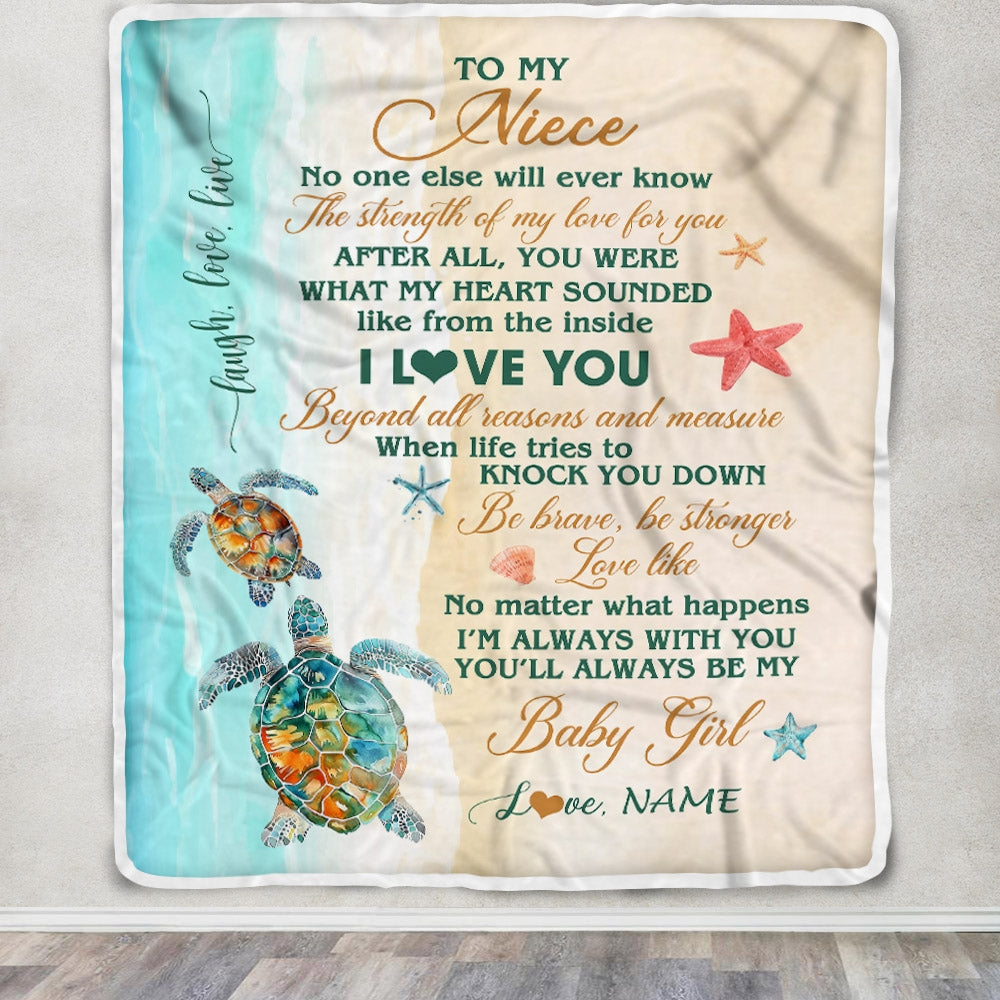 TO MY
Niece
No one else will ever know
The strength of my love for you
AFTER ALL, YOU WERE
WHAT MY HEART SOUNDED
like from the inside
I LOVE YOU
Beyond all reasons and measure
When life tries to
KNOCK YOU DOWN
Be brave, be stronger
Love like
No matter what happens
I'M ALWAYS WITH YOU
YOU'LL ALWAYS BE MY
Baby Girl
Love, NAME
laugh, love, live